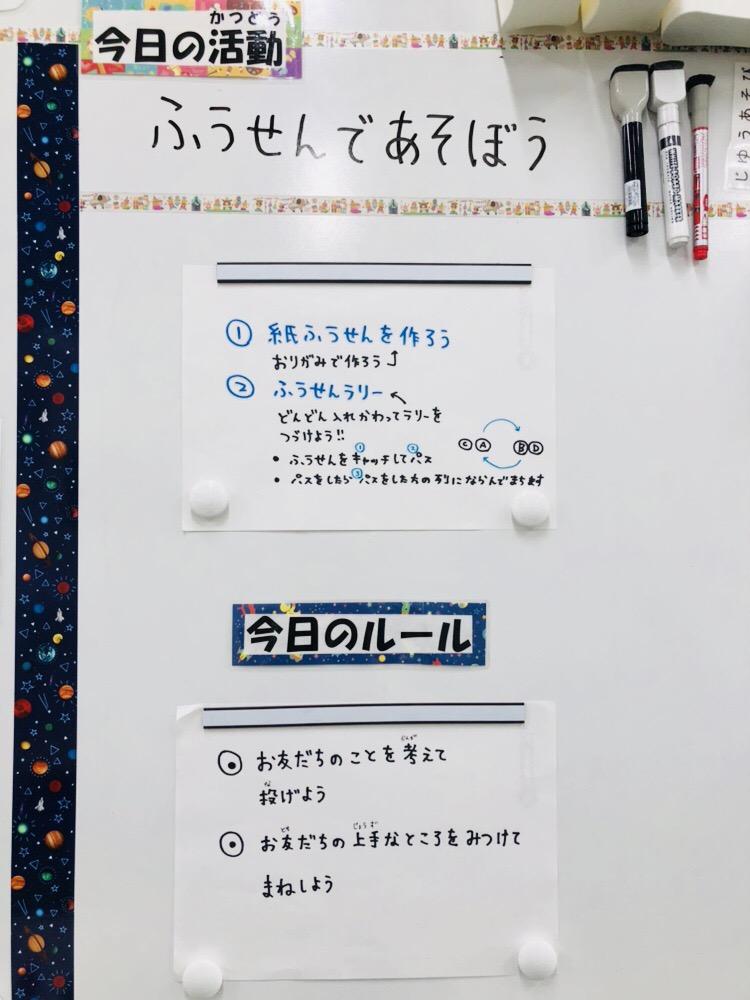 かつどう
今日の活動
ふうせんであそぼう
じゆうあそび
① 紙ふうせんを作ろう
おりがみで作ろう
② ふうせんラリー
どんどん入れかわってラリーを
つづけよう!!
① ②
・ふうせんをキャッチしてパス
③
・パスをしたらパスをした方の列にならんでまちます
C A B D
今日のルール
お友だちのことを考えて
な
投げよう
とも じょうず
お友だちの上手なところをみつけて
まねしよう